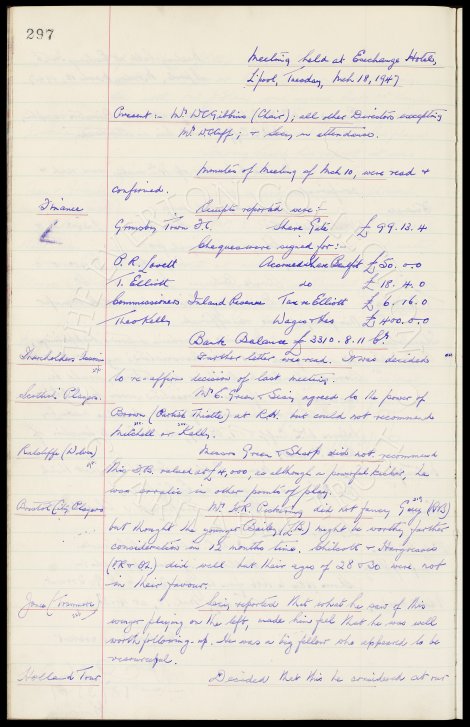 297
Meeting held at Exchange Hotel,
L'pool, Tuesday, Mch. 18, 1947
Present:- Mr. W.C. Gibbins (Chair); all other Directors excepting
Mr. W. Cuff; & Secy. in attendance.
Minutes of Meeting of Mch. 10, were read &
confirmed.
Finance Receipts reported were:-
Grimsby Town F.C. Share Gate £ 99.13.4
Cheques were signed for:-
Accrued Share Benefit £ 50.0.0
T. Elliott do £ 18.4.0
Commissioners Inland Revenue Tax re Elliott £ 6.16.0
Theo Kelly Wages & Exs £ 400.0.0
Bank Balance £ 3310.8.11 Cr.
Shareholders Assocn Further letter was read. It was decided
to re-affirm decision of last meeting.
Scottish Players. Mr. E. Green & Secy. agreed to the power of
Brown (Partick Thistle) at R.H. but could not recommend
Mitchell or Kelly.
Ratcliffe (Wolves) Messrs Green & Sharp did not recommend
this F.B. valued at £4,000, as although a powerful kicker, he
was erratic in other points of play.
Bristol City Players Mr. did not fancy Guy (RB)
but thought the younger Bailey (LB) might be worthy further
consideration in 12 months time. Chilcott & Hargreaves
did well but their ages of 28 & 30 were not
in their favour.
Jones (Tranmere) Secy. reported that what he saw of this
winger playing on the left, made him feel that he was well
worth following-up. He was a big fellow who appeared to be
resourceful.
Holland Tour Decided that this be considered at our